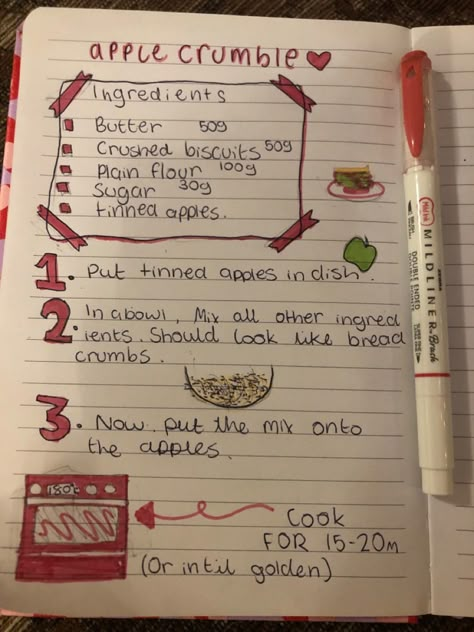 apple crumble
Ingredients
Butter 50g
Crushed biscuits 50g
Plain flour 100g
Sugar 30g
tinned apples.
1. Put tinned apples in dish.
2. In a bowl, Mix all other ingred
ients. Should look like bread
crumbs.
3. Now put the mix onto
the apples.
180°c
Cook
FOR 15-20m
(Or intil golden)
MILDLINER Brush
DOUBLE ENDED